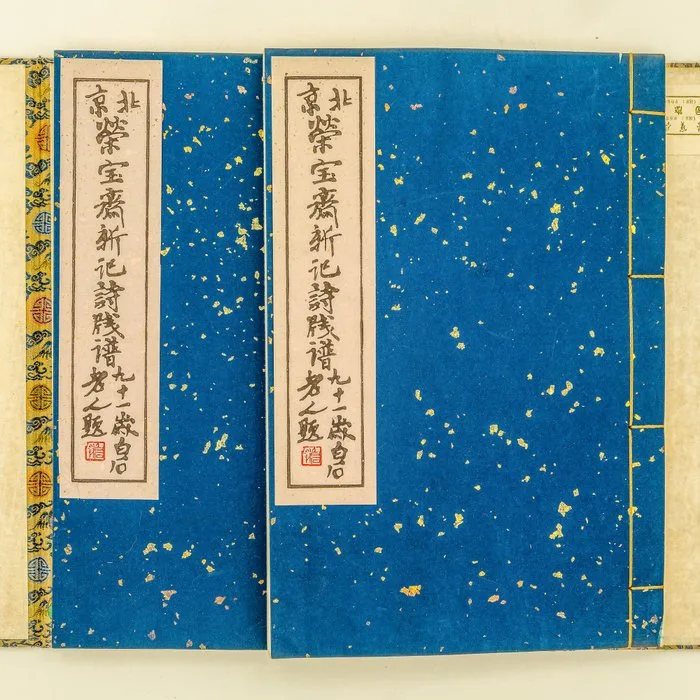 北京
榮宝齋新记詩牋谱
九十一歲白石
老人題
北京
榮宝齋新记詩牋谱
九十一歲白石
老人題